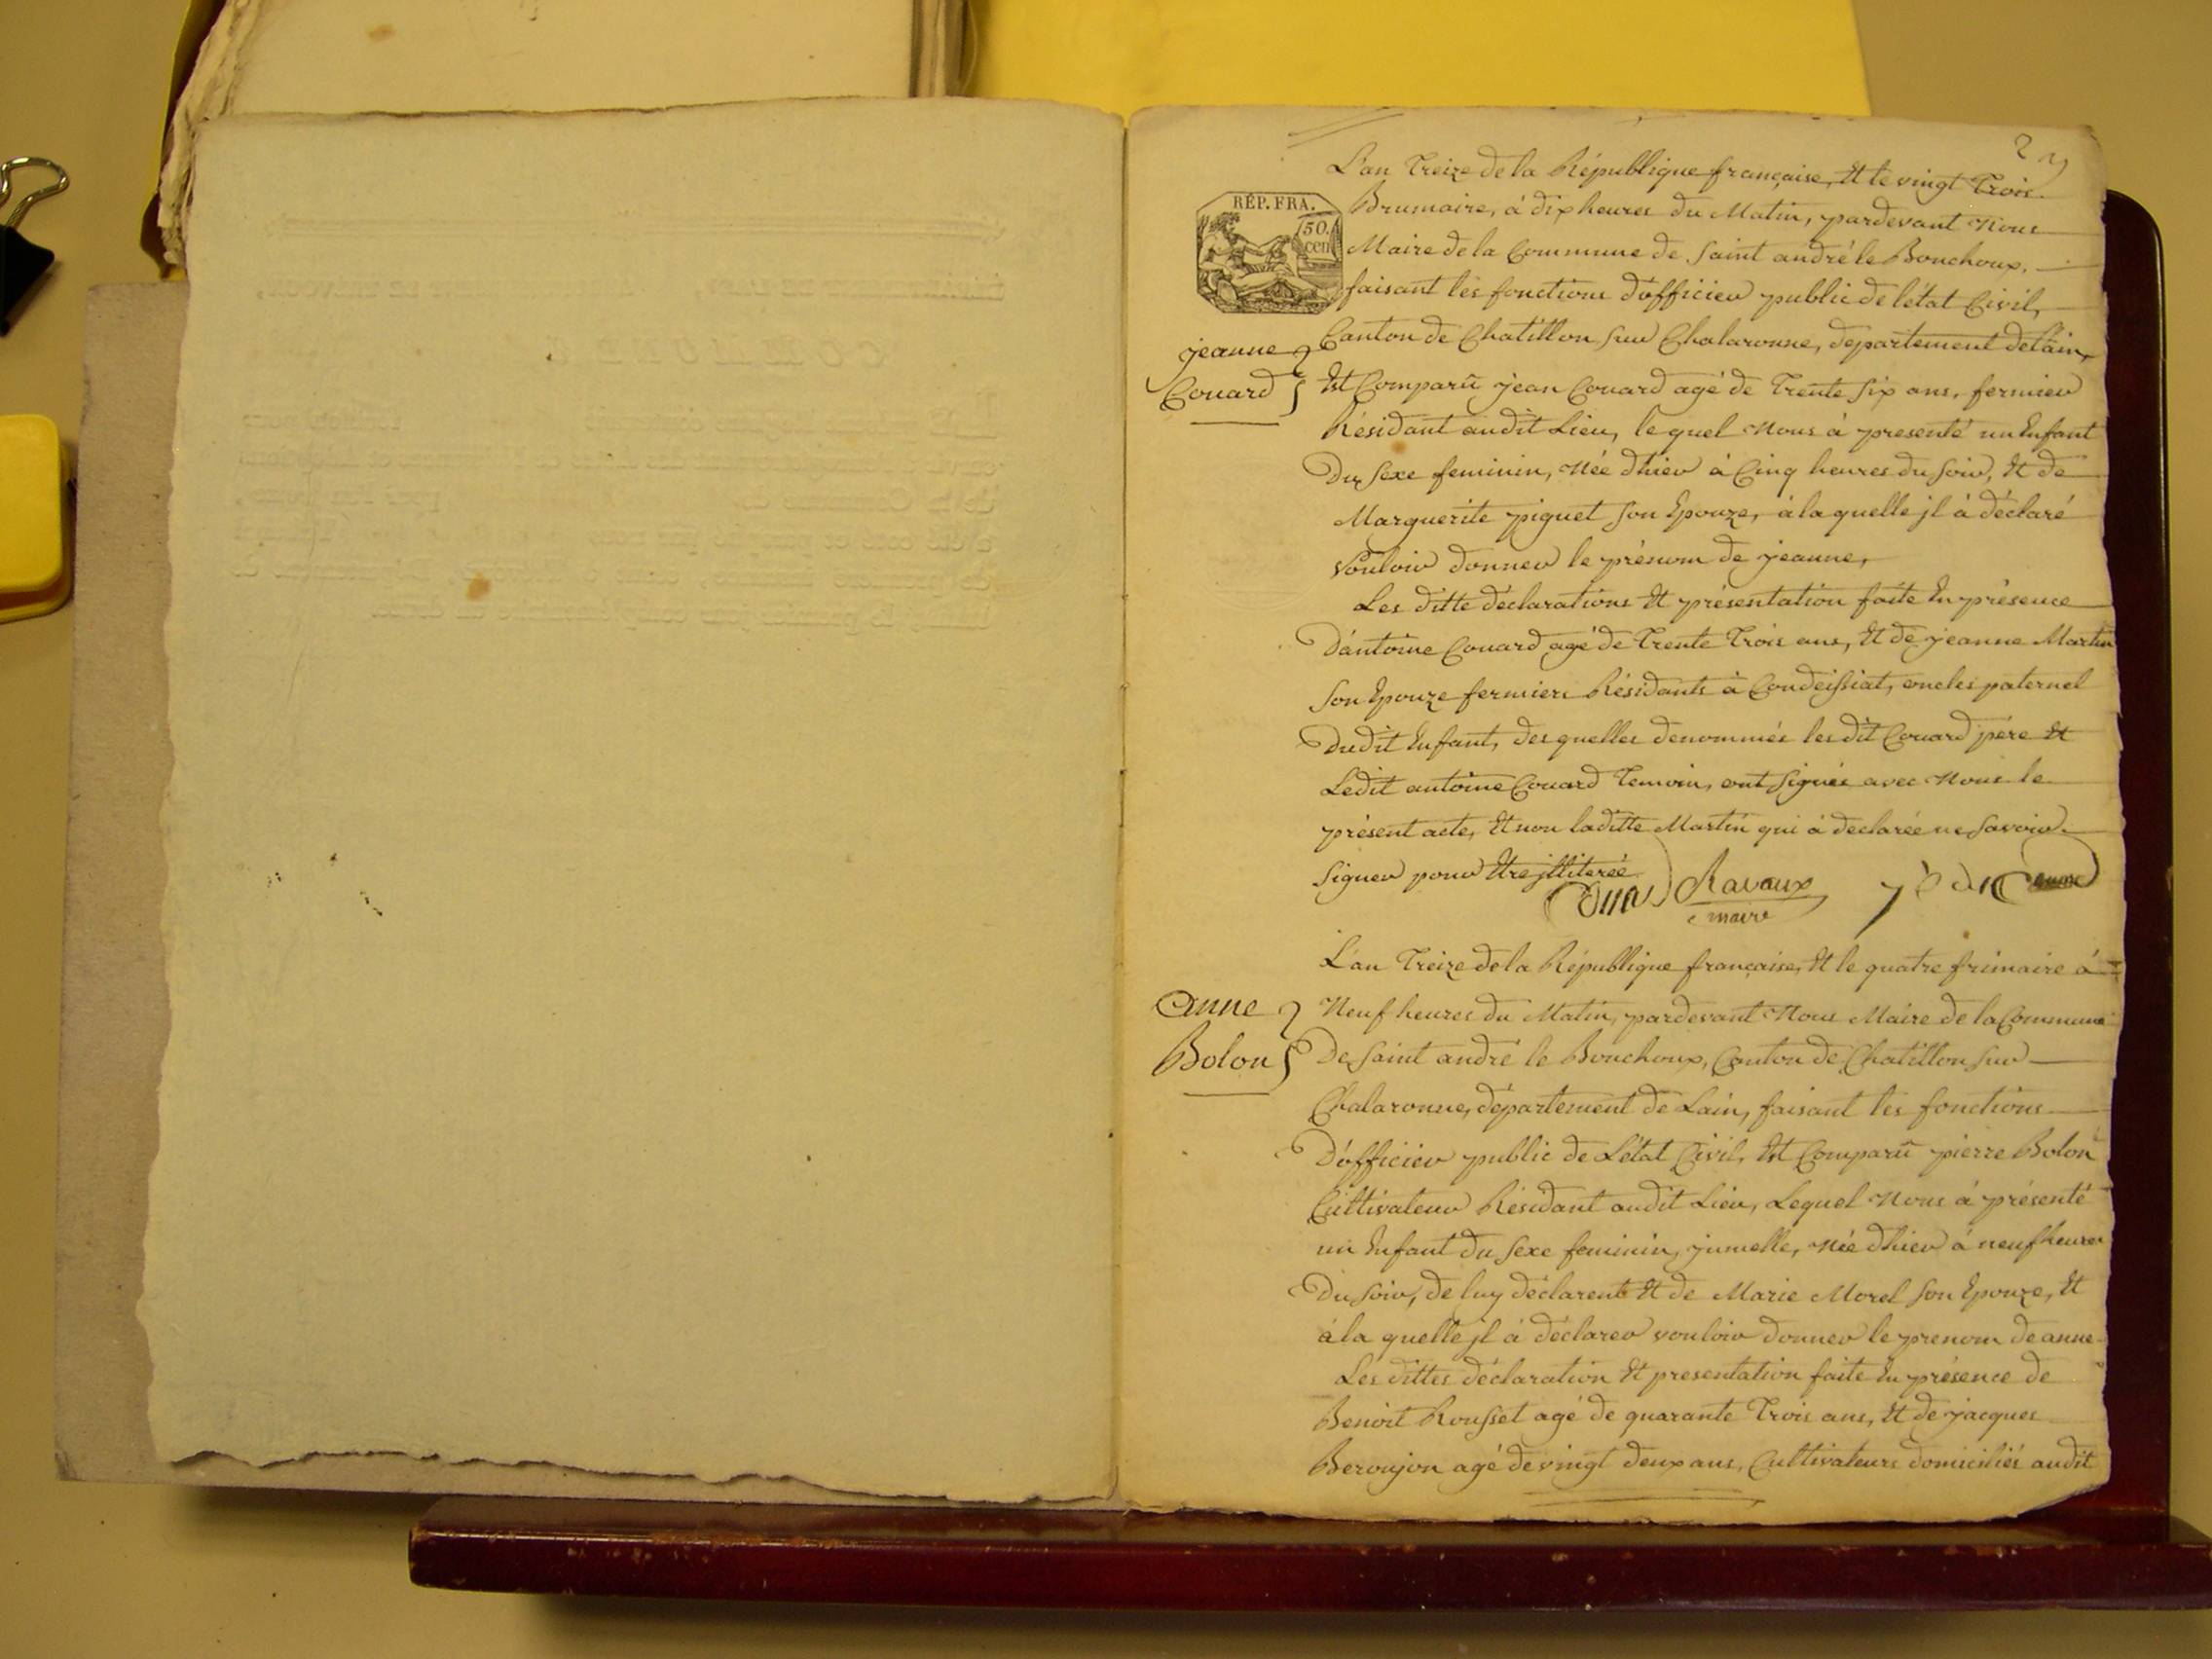 2
L'an treize de la Républigue française, Et le vingt trois
Brumaire, à dix heures du Matin, pardevant Nous
RÉP. FRA.
50.
cen
Maire de la Commune de Saint andré le Bouchoux,
faisant les fonctions d'officier public de l'état Civil,
Canton de Chatillon sur Chalaronne, département de L'ain,
jeanne
Couard
Est Comparu jean Couard agé de trente six ans, fermier
Résidant audit Lieu, le quel Nous à presenté un Enfant
Du sexe feminin, Née d'hier à Cinq heures du soir, Et de
Marguerite piguet son Epouze, à la quelle jl à déclaré
Vouloir donner le prénom de jeanne,
Les ditte déclarations Et présentation faite En présence
D'antoine Couard agé de trente trois ans, Et de jeanne Martin
son Epouze fermiers Résidants à Condeissiat, oncles paternel
Dudit Enfant, des quelles denommés les dit Couard père Et
Ledit antoine Couard temoin, ont signés avec Nous le
présent acte, Et non laditte Martin qui à declarée ne savoir
signer pour Etre jlliterée
Ravaux
maire
L'an treize de la Républigue française, Et le quatre frimaire à
anne
Bolon
Neuf heures du Matin, pardevant Nous Maire de la Commune
De Saint andré le Bouchoux, Canton de Chatillon sur
Chalaronne, département de Lain, faisant les fonctions
D'officier public de L'état Civil, Est Comparu pierre Bolon
Cultivateur Résidant audit Lieu, Lequel Nous à présenté
un Enfant du sexe feminin, jumelle, Née d'hier à neuf heures
Du soir, de luy déclarent Et de Marie Morel son Epouze, Et
à la quelle jl à déclarer vouloir donner le prenom de anne
Les dittes déclaration Et presentation faite En présence de
Benoit Rousset agé de quarante trois ans, Et de jacques
Beroujon agé de vingt deux ans, Cultivateurs domiciliés audit